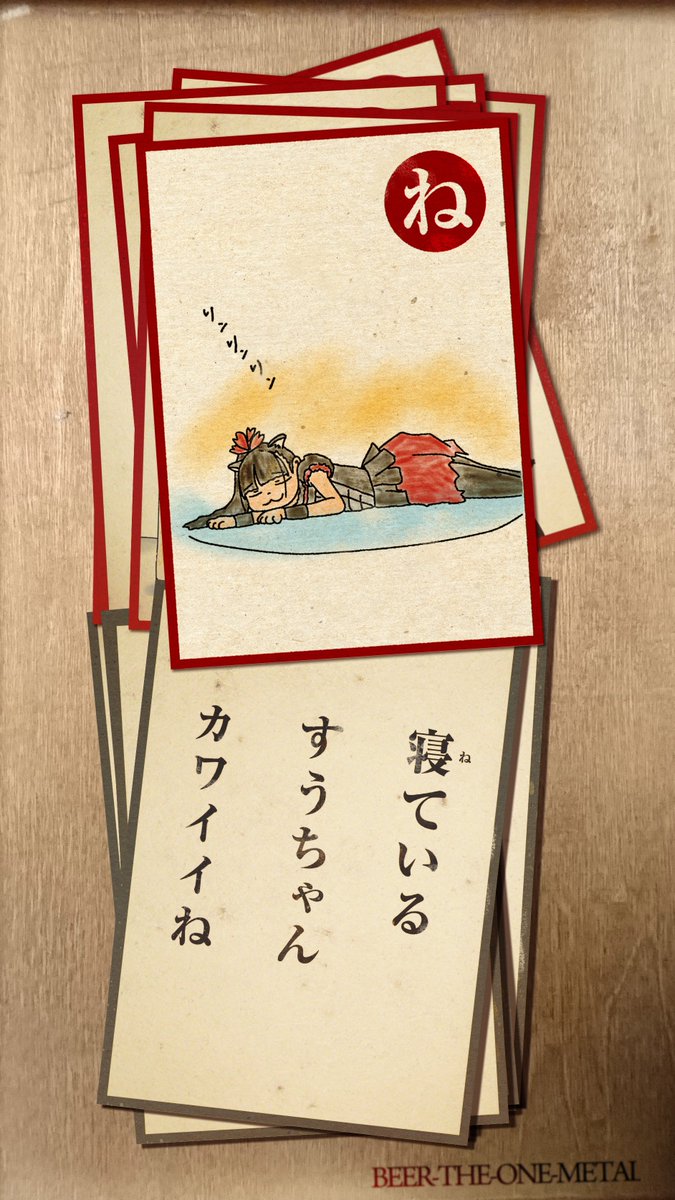 ね
リンリンリン
寝ている
ね
すうちゃん
カワイイね
BEER-THE-ONE-METAL